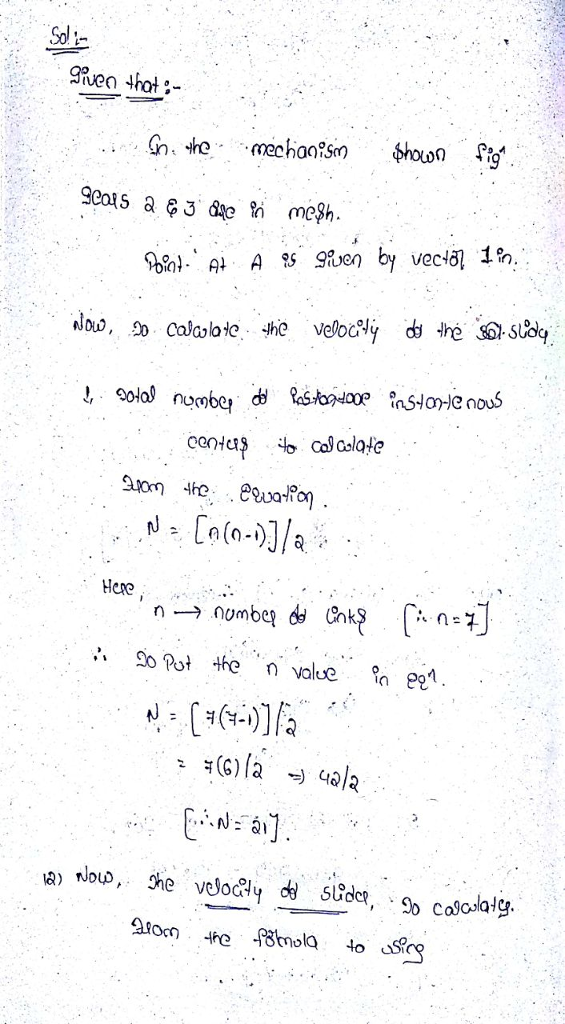 Sol :-
Given that :-
In the mechanism shown fig
gears 2 & 3 are in mesh.
Point. At A is given by vector 1 in.
Now, to calculate the velocity of the slider
1, Total number of instantenous
centers to calculate
From the equation.
N = [n(n-1)]/2
Here,
n → number of links [∵ n=7]
∴ To Put the 'n' value in eqn.
N = [7(7-1)]/2
= 7(6)/2 ⇒ 42/2
[∴ N = 21].
2) Now, The velocity of slider, to calculate.
From the formula to using